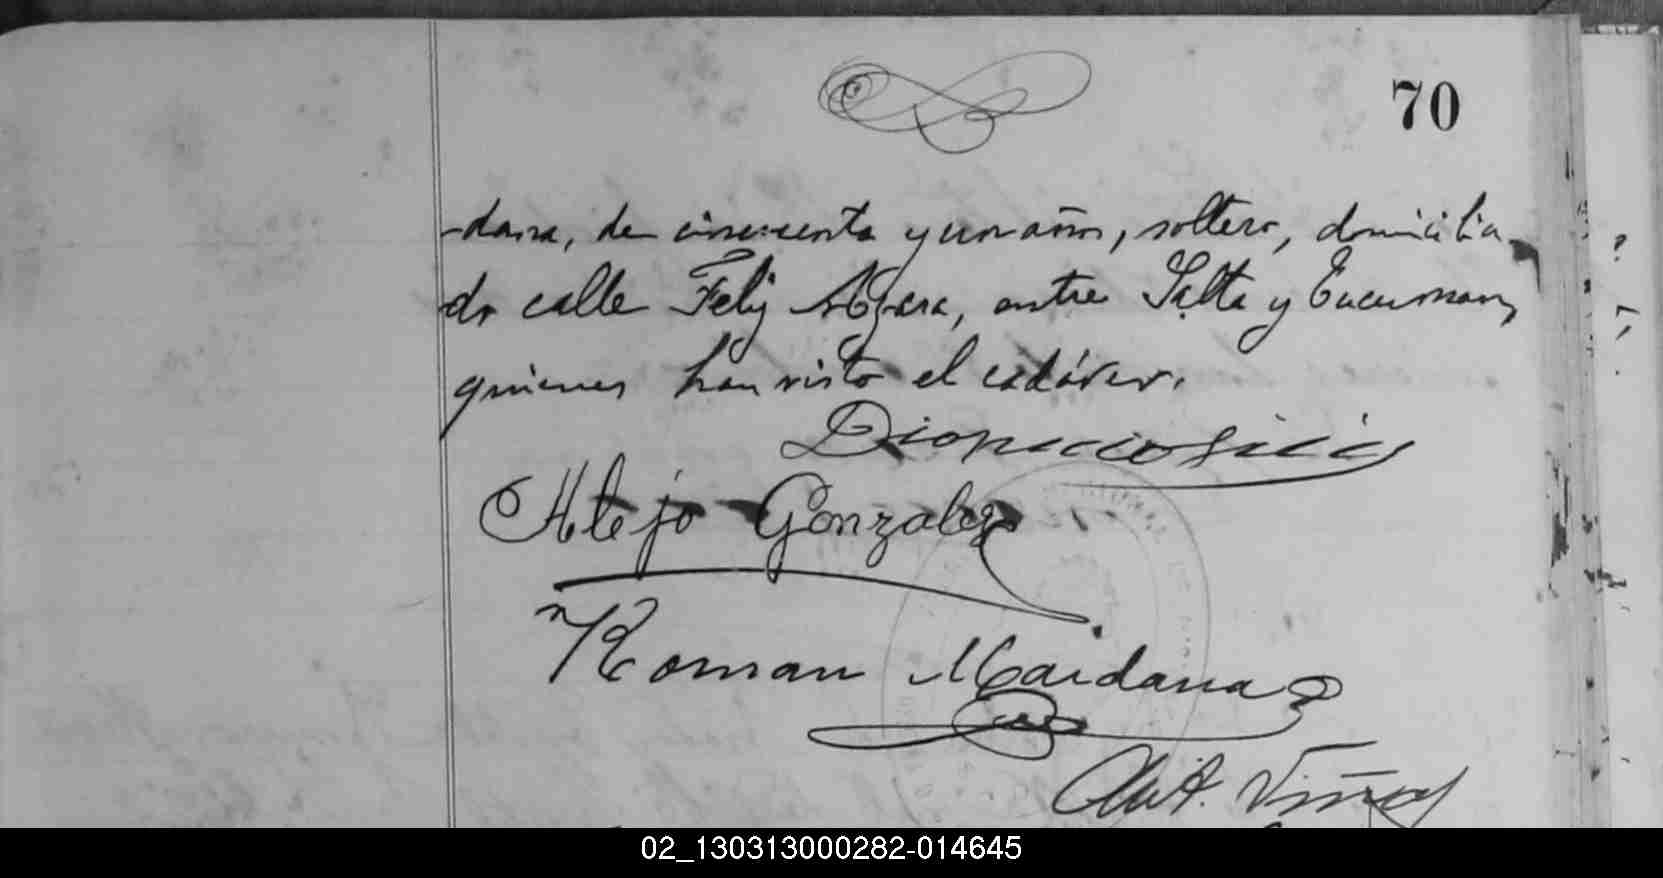 70
-dana, de cincuenta y un años, soltero, domicilia-
do calle Felix Azara, entre Salta y Tucuman,
quienes han visto el cadáver.
Dionicio
Alejo Gonzalez
Roman Maidana
Ant. Viñas
02_130313000282-014645